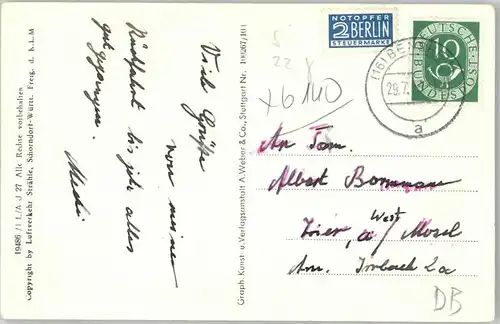 Viele Grüße
von meiner
Rückfahrt bis jetzt alles
gut gegangen.
Medi
19486 /1 L/A J 27 Alle Rechte vorbehalten
Copyright by Luftverkehr Strähle, Schorndorf-Württ. Freig. d. K.L.M
Graph. Kunst- u. Verlagsanstalt A. Weber & Co., Stuttgart Nr.
NOTOPFER
2 BERLIN
STEUERMARKE
10
DEUTSCHE
BUNDESPOST
(16)
29.7.
a
5
22
x6140
An Fam.
Albert
Trier, a/ Mosel
West
Am. Irrbach 2a
DB